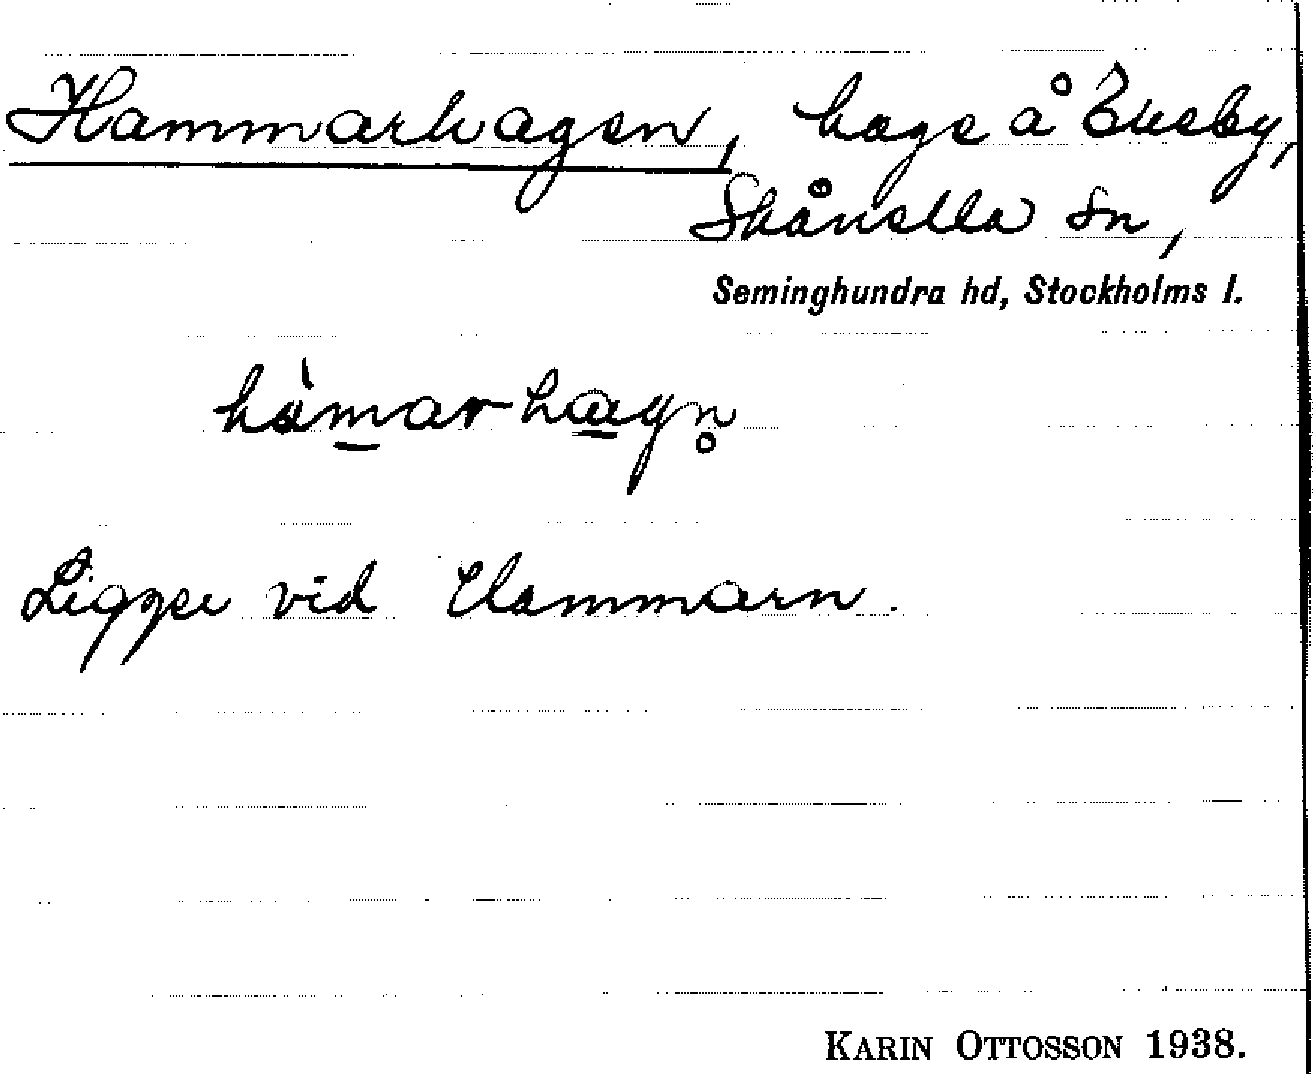 Hammarhagen, hage å Åsby,
Skånella sn,
Seminghundra hd, Stockholms l.
hàmarhagn̥
Ligger vid Hammarn.
KARIN OTTOSSON 1938.